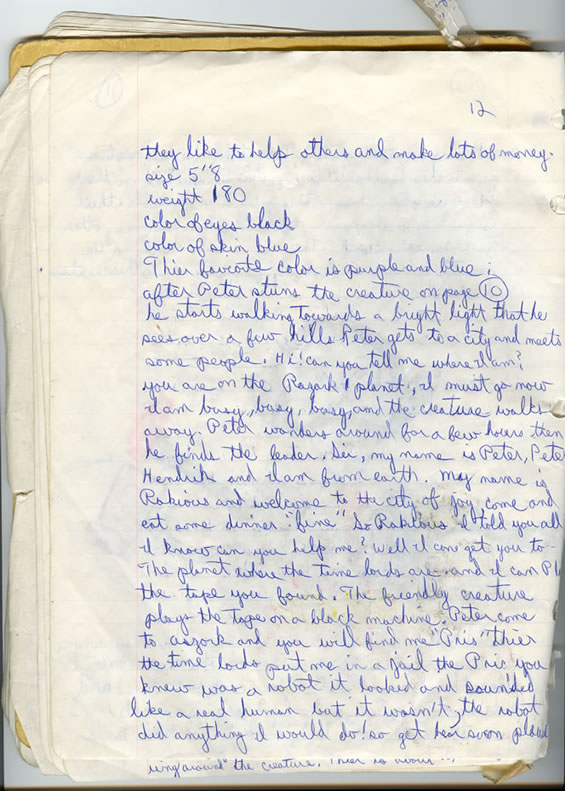 12
they like to help others and make lots of money.
size 5"8
weight 180
color of eyes black
color of skin blue
Thier favorote color is purple and blue;
after Peter stuns the creature on page 10
he starts walking Towards a bright light that he
sees over a few hills Peter gets to a city and meets
some people. Hi! can you tell me where I am?
you are on the Razark 1 planet, I must go now
I am busy, busy, busy, and the creature walks
away. Peter wonders around for a few hours then
he finds the leader. Sir, my name is Peter, Peter
Hendrik and I am from earth. may name is
Rakious and welcome to the city of joy come and
eat some dinner "fine" So Rakious I told you all
I know can you help me? Well I can get you to
The planet where the time lords are and I can Pl
the tape you found. The friendly creature
plays the Tape on a black machine. Peter come
to aszork and you will find me "Pris" thier
the time lords put me in a jail the Pris you
knew was a robot it looked and sounded
like a real human but it wasn't, the robot
did anything I would do! so get hear soon
ring around the creature. Thier is